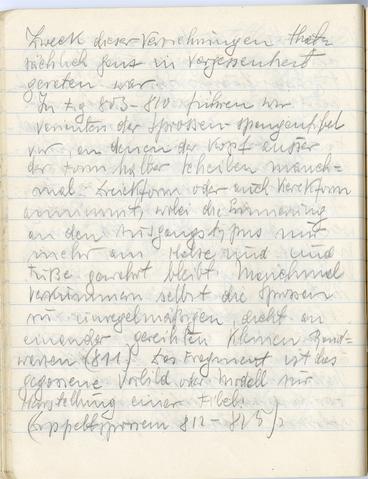 Zweck dieser Verzierungen that-
sächlich ganz in Vergessenheit
geraten war.
In Fig 803–810 führen wir
Varianten der Sprossenspangenfibel
vor, an denen der Kopf ausser
der Form halber Scheiben manch-
mal Dreickform oder auch Viereckform
annimmt, wobei die Erinnerung
an den Ausgangstypus nur
mehr am Halse und
Fuße gewahrt bleibt. Manchmal
verkümmern selbst die Sprossen
zu unregelmäßigen, dicht an
einander gereihten kleinen Rand-
warzen (811). Das Fragment ist das
gegossene Vorbild oder Modell zur
Herstellung einer Fibel.
(Doppelsprossen 812–815)